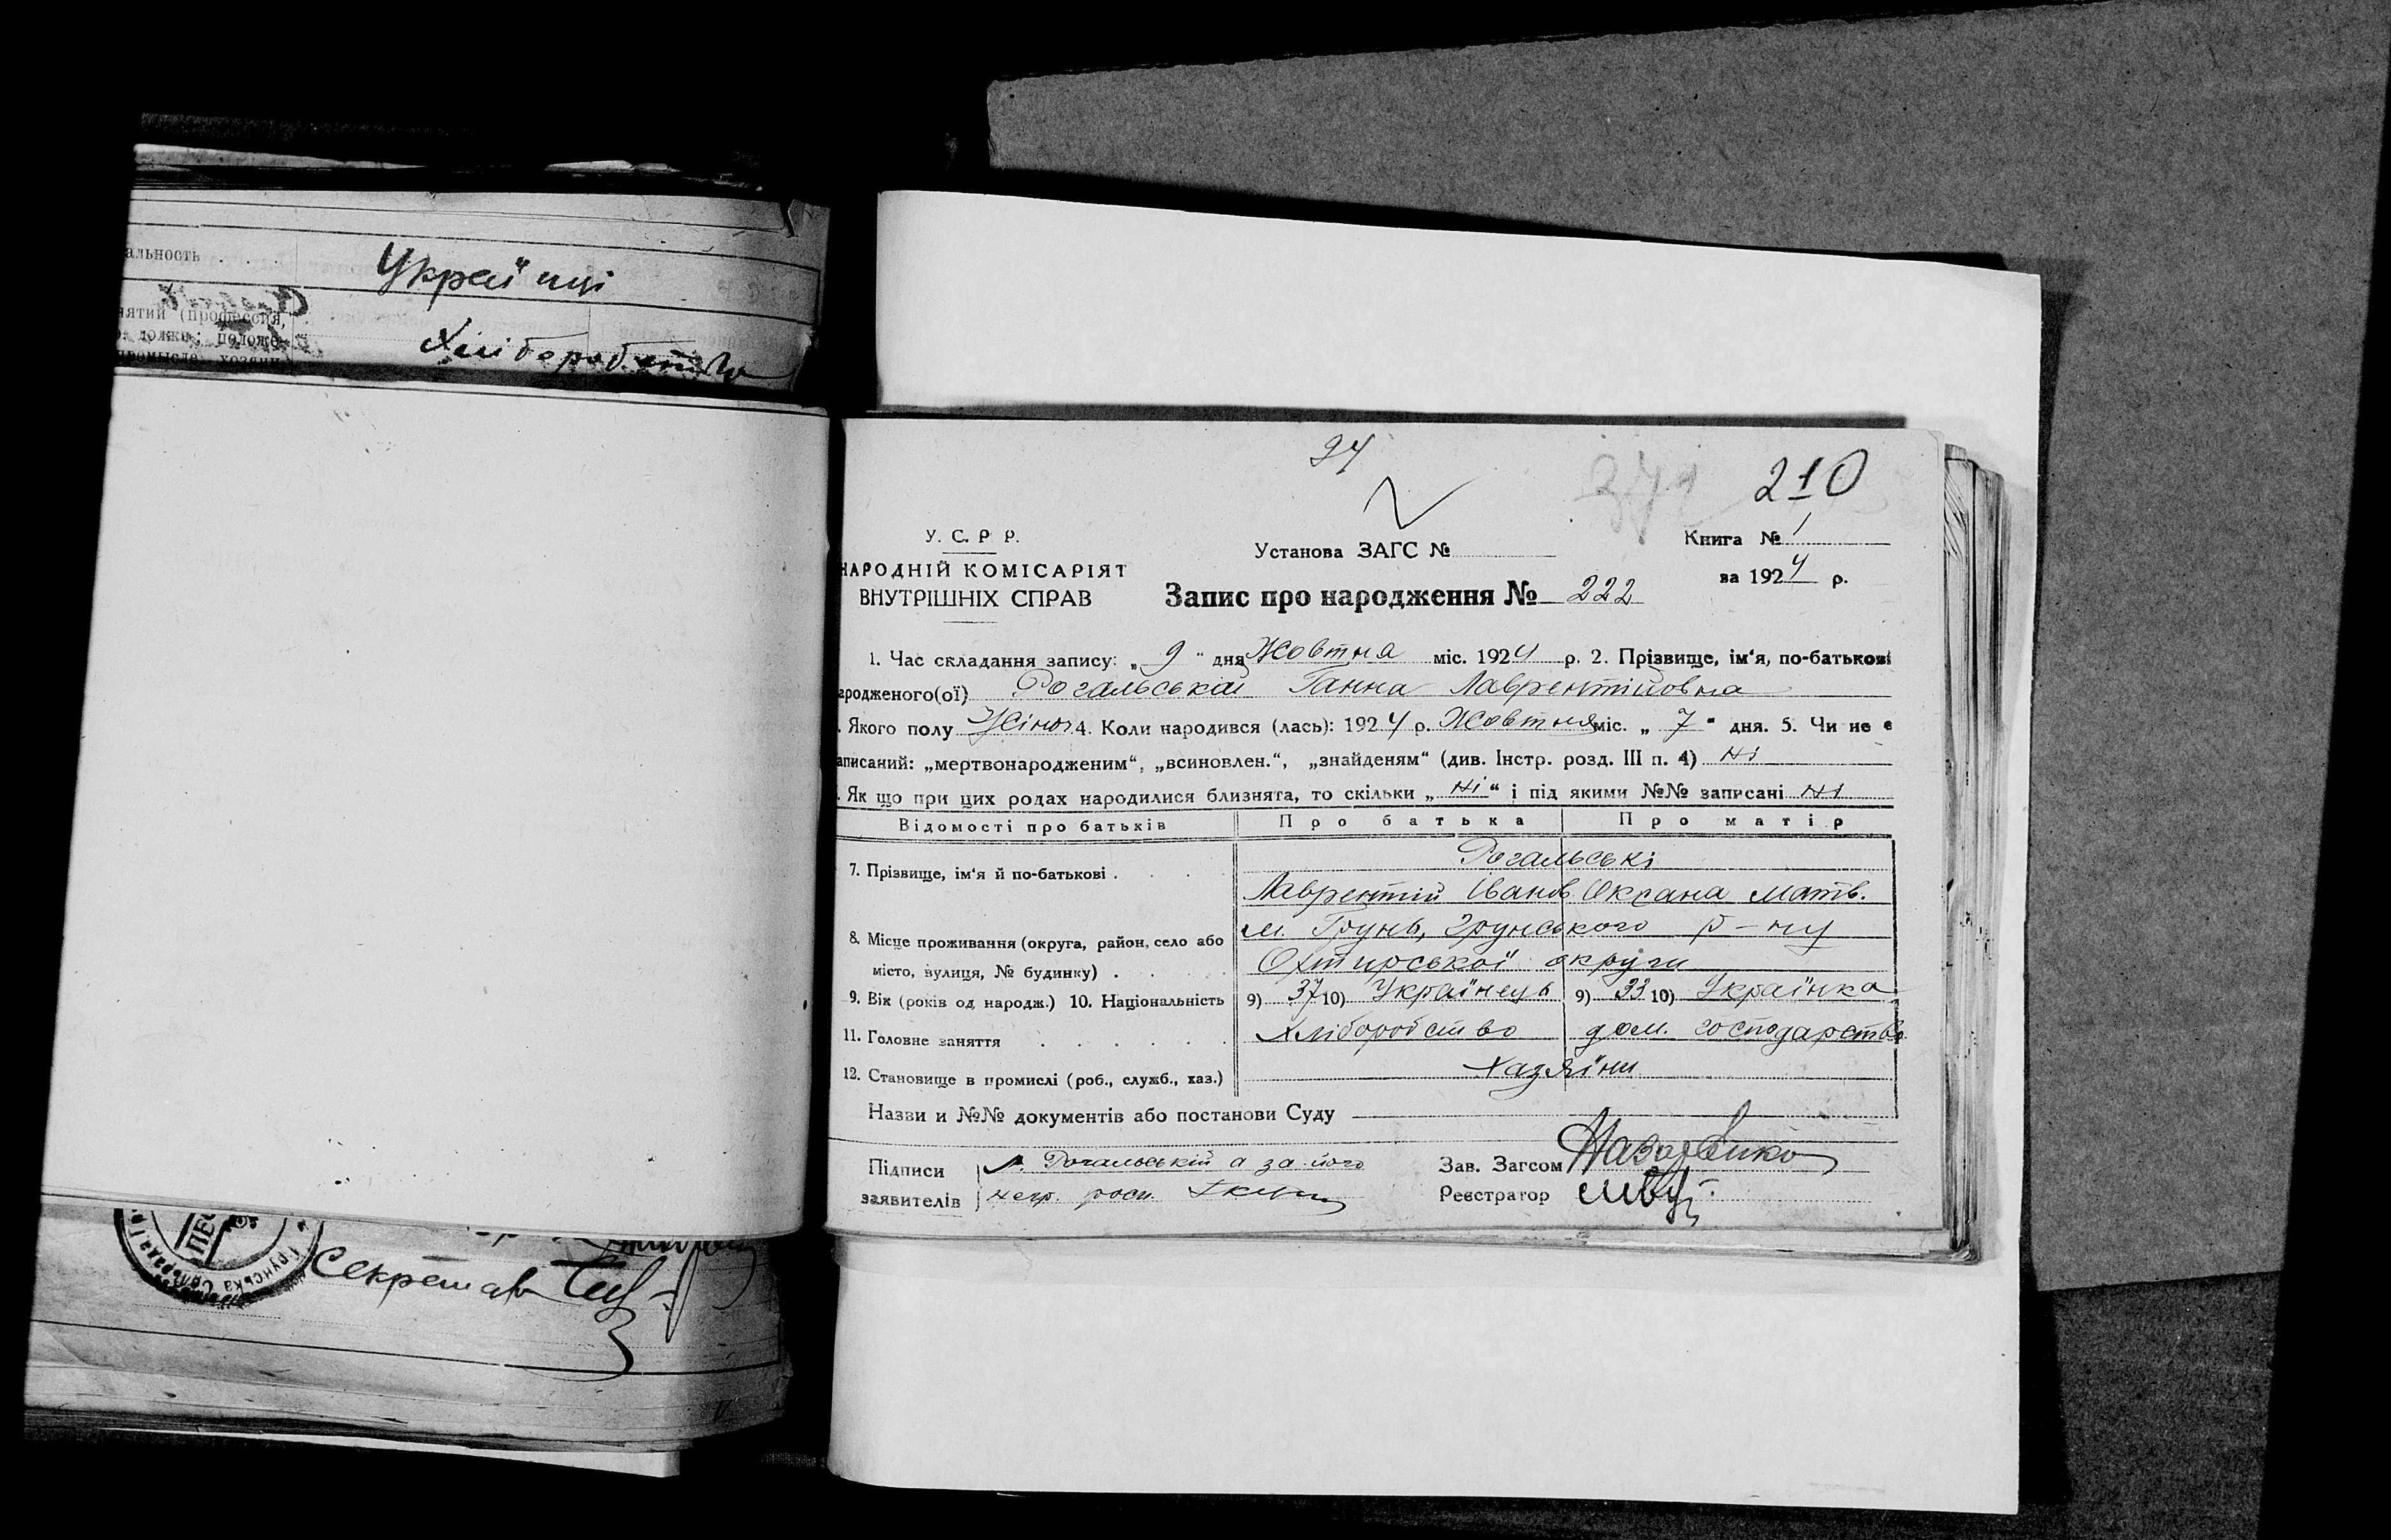 альность . . .
Українці
нятий (профессия,
о. должн; положе-
промысле хозяин
Хліборобство
94
271
210
У. С. Р. Р.
НАРОДНІЙ КОМІСАРІЯТ
ВНУТРІШНІХ СПРАВ
Установа ЗАГС №
Книга № 1
за 1924 р.
Запис про народження № 222
1. Час складання запису: „ 9 " дня Жовтня міс. 1924 р. 2. Прізвище, ім'я, по-батькові
ародженого(ої) Рогальській Ганна Лаврентіповна
. Якого полу Жіноч 4. Коли народився (лась): 1924 р. Жовтня міс. „ 7 " дня. 5. Чи не є
аписаний: „мертвонародженим“, „всиновлен.“, „знайденям“ (див. Інстр. розд. III п. 4) Ні
. Як що при цих родах народилися близнята, то скільки „ Ні “ і під якими №№ записані Ні
Відомості про батьків Про батька Про матір
Рогальські
7. Прізвище, ім'я й по-батькові . . . .
Лаврентій Іванов. Оксана Матв.
м. Грунь, Грунського р-ну
8. Місце проживання (округа, район, село або
місто, вулиця, № будинку) . . . .
Охтирської округи
9. Вік (років од народж.) 10. Національність 9) 37 10) Українець 9) 33 10) Українка
11. Головне заняття . . . . . . Хліборобство дом. господарство
12. Становище в промислі (роб., служб., хаз.) Хазяїни
Назви и №№ документів або постанови Суду
Підписи Л. Рогальській а за його
заявителів негр. росп.
Зав. Загсом Назаренко
Реєстратор
Грунська Сільська
Секретар